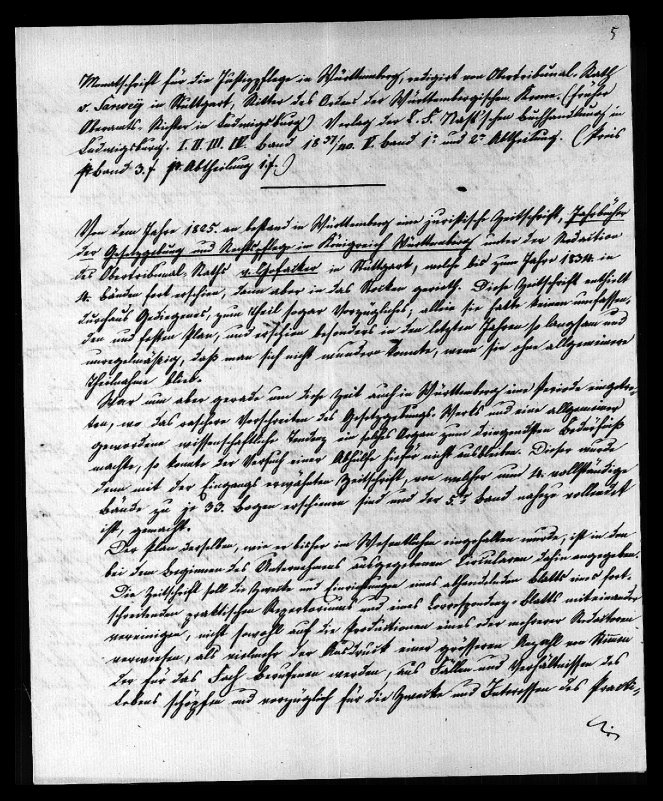 5
Monatschrift für die Justizpflege in Württemberg, redigirt von Obertribunal-Rath
v. Sarwey in Stuttgart, Ritter des Ordens der Württembergischen Krone. (früher
Oberamts-Richter in Ludwigsburg) Verlag der C. F. Nast'schen Buchhandlung in
Ludwigsburg. I. II. III. IV. Band 1837/40. V. Band 1e und 2e Abtheilung. (Preis
pr Band 3 f pr Abtheilung 1 f.)
Von dem Jahre 1825. an bestand in Württemberg eine juristische Zeitschrift, Jahrbücher
der Gesetzgebung und Rechtspflege im Königreich Württemberg unter der Redaction
des Obertribunal-Raths v. Hofacker in Stuttgart, welche bis zum Jahr 1834. in
4. Bänden fort erschien, dann aber in das Stocken gerieth. Diese Zeitschrift enthielt
durchaus Gediegenes, zum Theil sogar Vorzügliches; allein sie hatte keinen umfassen-
den und festen Plan, und erschien besonders in den letzten Jahren so langsam und
unregelmäßig, daß man sich nicht wundern konnte, wenn sie ohne allgemeinere
Theilnahme blieb.
War nun aber gerade um diese Zeit auch in Württemberg eine Periode eingetre-
ten, wo das raschere Vorschreiten des Gesetzgebungs-Werks und eine allgemeiner
gewordene wissenschaftliche Tendenz ein solches Organ zum dringendsten Bedürfniß
machte, so konnte der Versuch einer Abhilfe hiefür nicht ausbleiben. Dieser wurde
denn mit der Eingangs erwähnten Zeitschrift, von welcher nun 4. vollständige
Bände zu je 33. Bogen erschienen sind und der 5te Band nahezu vollendet
ist, gemacht.
Der Plan derselben, wie er bisher im Wesentlichen eingehalten wurde, ist in dem
bei dem Beginnen des Unternehmens ausgegebenen Circularen dahin angegeben:
Die Zeitschrift soll die Zwecke und Einrichtungen eines abhandelnden Blatts eines fort-
schreitenden praktischen Repertoriums und eines Correspondenz-Blatts miteinander
vereinigen, nicht sowohl auf die Produktionen eines oder mehrerer Redactoren
verwiesen, als vielmehr der Ausdruck einer grösseren Anzahl von Stimmen
der für das Fach Berufenen werden, aus Fällen und Verhältnissen des
Lebens schöpfen und vorzüglich für die Zwecke und Interessen des Practi-